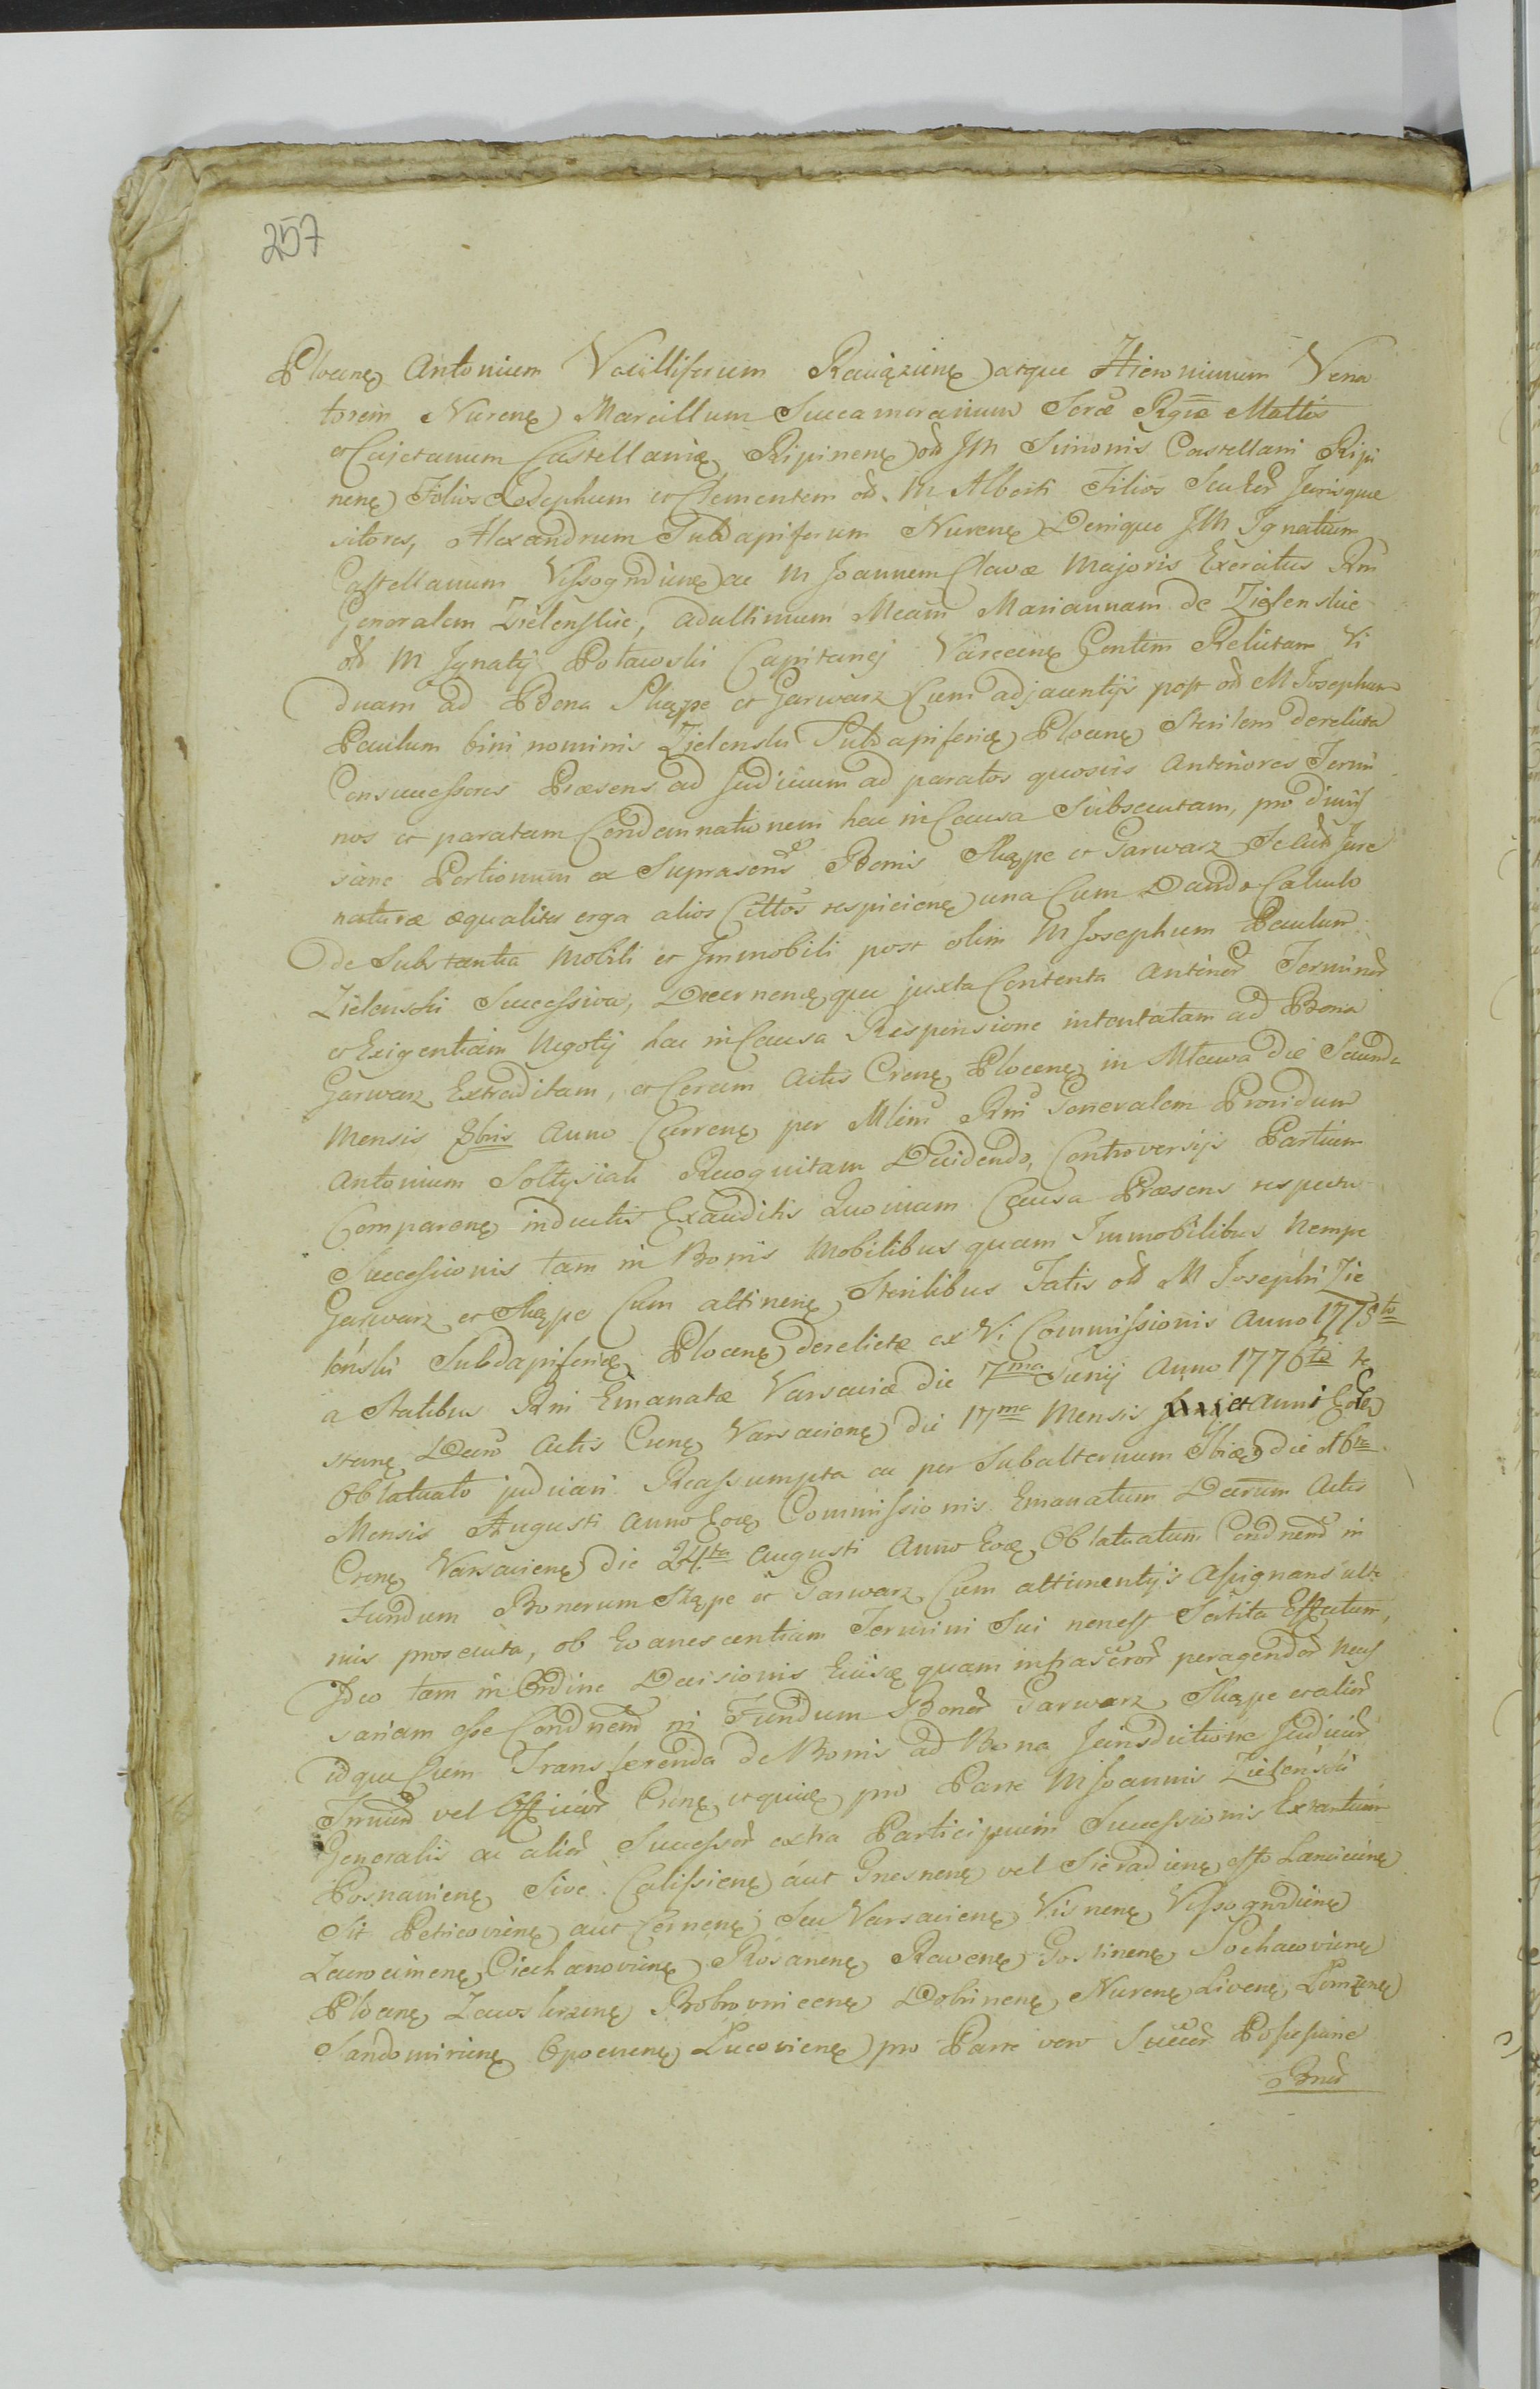 257
Plocenę Antonium Vexilliferum Raciązienę atque Hieronimum Vena
torem Nurenę Marcellum Succamerarium Scræ Rgiæ Mattis
et Cajetanum Castellanię Ripinenę od JM Simonis Castellani Ripi
nenę Filios Josephum et Clementem od. M Alberti Filios Jurisque
sitores, Alexandrum Subdapiferum Nurenę Denique JM Ignatium
Castellanum Vissogrdienę ac M Joannem Clavæ Majoris Exercitus Rni
Generalem Zielenskie, adultimum Meam Mariannam de Zielenskie
od M Ignatij Potawski Capitanej Varecenę Contem Relictam Vi
duam ad Bona Skąpe et Garwarz Cum adjacentijs post od M Josephum
Paulum bini nominis Zielenski Subdapiferię Plocenę Sterilem derelicta
Consuccessores Præsens ad Judicium ad paratos quosvis Anteriores Termi
nos et paratam Condemnationem hac in Causa Subsecutam, pro divis
sione Portionum ex Suprascris Bonis Skąpe et Garwarz Jure
naturæ æqualiter erga alios Cittos respicienę una Cum Dando Calculo
de Substantia Mobili et Immobili post olim M Josephum Paulum
Zielenski Successiva, Decernenę que juxta Contenta Anteriod Terminod
et Exigentiam Negotij hac in Causa Responsione intentatam ad Bona
Garwarz Extraditam, et Coram Actis Crenę Plocenę in Mława die Secunda
Mensis 8bris Anno Currenę per Mlem Rni Generalem Providum
Antonium Sołtysiak Recognitam Decidendo, Controversijs Partium
Comparenę inductis Exauditis Quoniam Causa Præsens respectu
Successionis tam in Bonis Mobilibus quam Immobilibus Nempe
Garwarz et Skąpe Cum attinenę Sterilibus Fatis od M Josephi Zie
lenski Subdapiferię Plocenę derelictæ ex Vi Commissionis Anno 1775to
a Statibus Rni Emanatæ Varsaviæ die 7ma Junij Anno 1776to te
stanę Decro Actis Crenę Varsavienę die 17ma Mensis et Anni Eodę
Oblatuato judicari Reassumpta ac per Subalternum die 16ta
Mensis Augusti Anno Eodę Commissionis Emanatum Decrum Actis
Crenę Varsavienę die 24ta Augusti Anno Eoæ Oblatuatum Condnend in
Fundum Bonorum Skąpe et Garwarz Cum attinentijs Assignans
nis prosecuta, ob Evanescentiam Termini Sui nonest Sortita Effectum,
Ideo tam in Ordine Decisionis Ejusę quam infrascrod peragendod Neces
sariam esse Condnend in Fundum Bonod Garwarz, Skąpe et aliod
idque Cum Transferenda de Bonis ad Bona Jurisdictione Judiciod
vel Officiod Crenę et quidę pro Parte M Joannis Zielenski
Generalis ac aliod Successod extra Participium Successionis Extantium
Posnanienę Sive Calissienę aut Gnesnenę vel Sieradienę Lancicinę
Sit Petricovienę aut Cernenę Seu Varsavienę Visnenę Vissogrdienę
Zacrocimenę Ciechanovienę Rosanenę Ravenę Gostinenę Sochacovienę
Plocenę Zawskrzenę Bobrovnicenę Dobrinenę Nurenę Livenę, Lomzenę
Sandomirienę Opocnenę Lucovienę pro Parte vero Possessione
Bnod